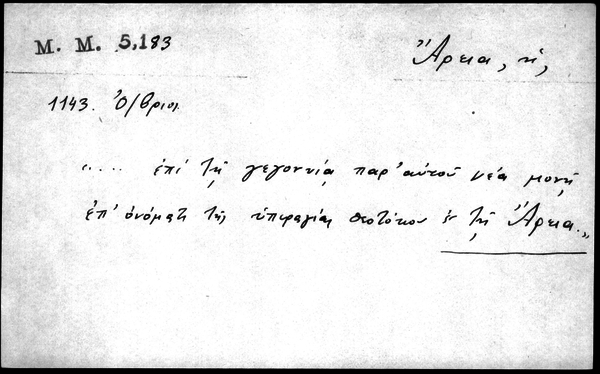 M. M. 5,183
Ἄρεια, ἡ,
1143. Ὀ/βριοι.
“.... ἐπί τῇ γεγονυίᾳ παρ' αὐτοῦ νέᾳ μονῇ
ἐπ' ὀνόματι τῆς ὑπεραγίας θεοτόκου ἐν τῇ Ἄρεια.„